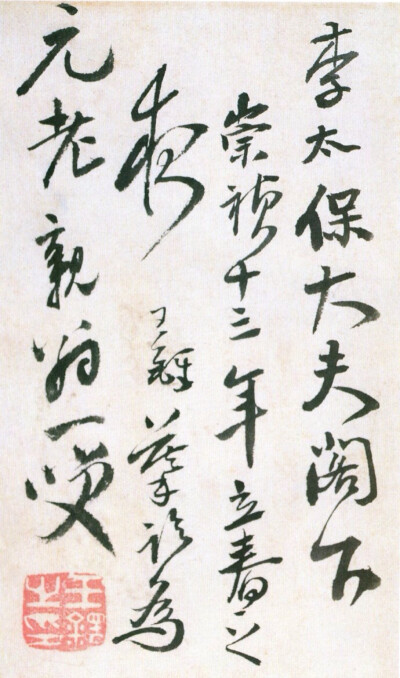 李太保大夫閣下
崇禎十三年立春之
夜 王鐸摹 為
元老親翁一咲
王鐸之印